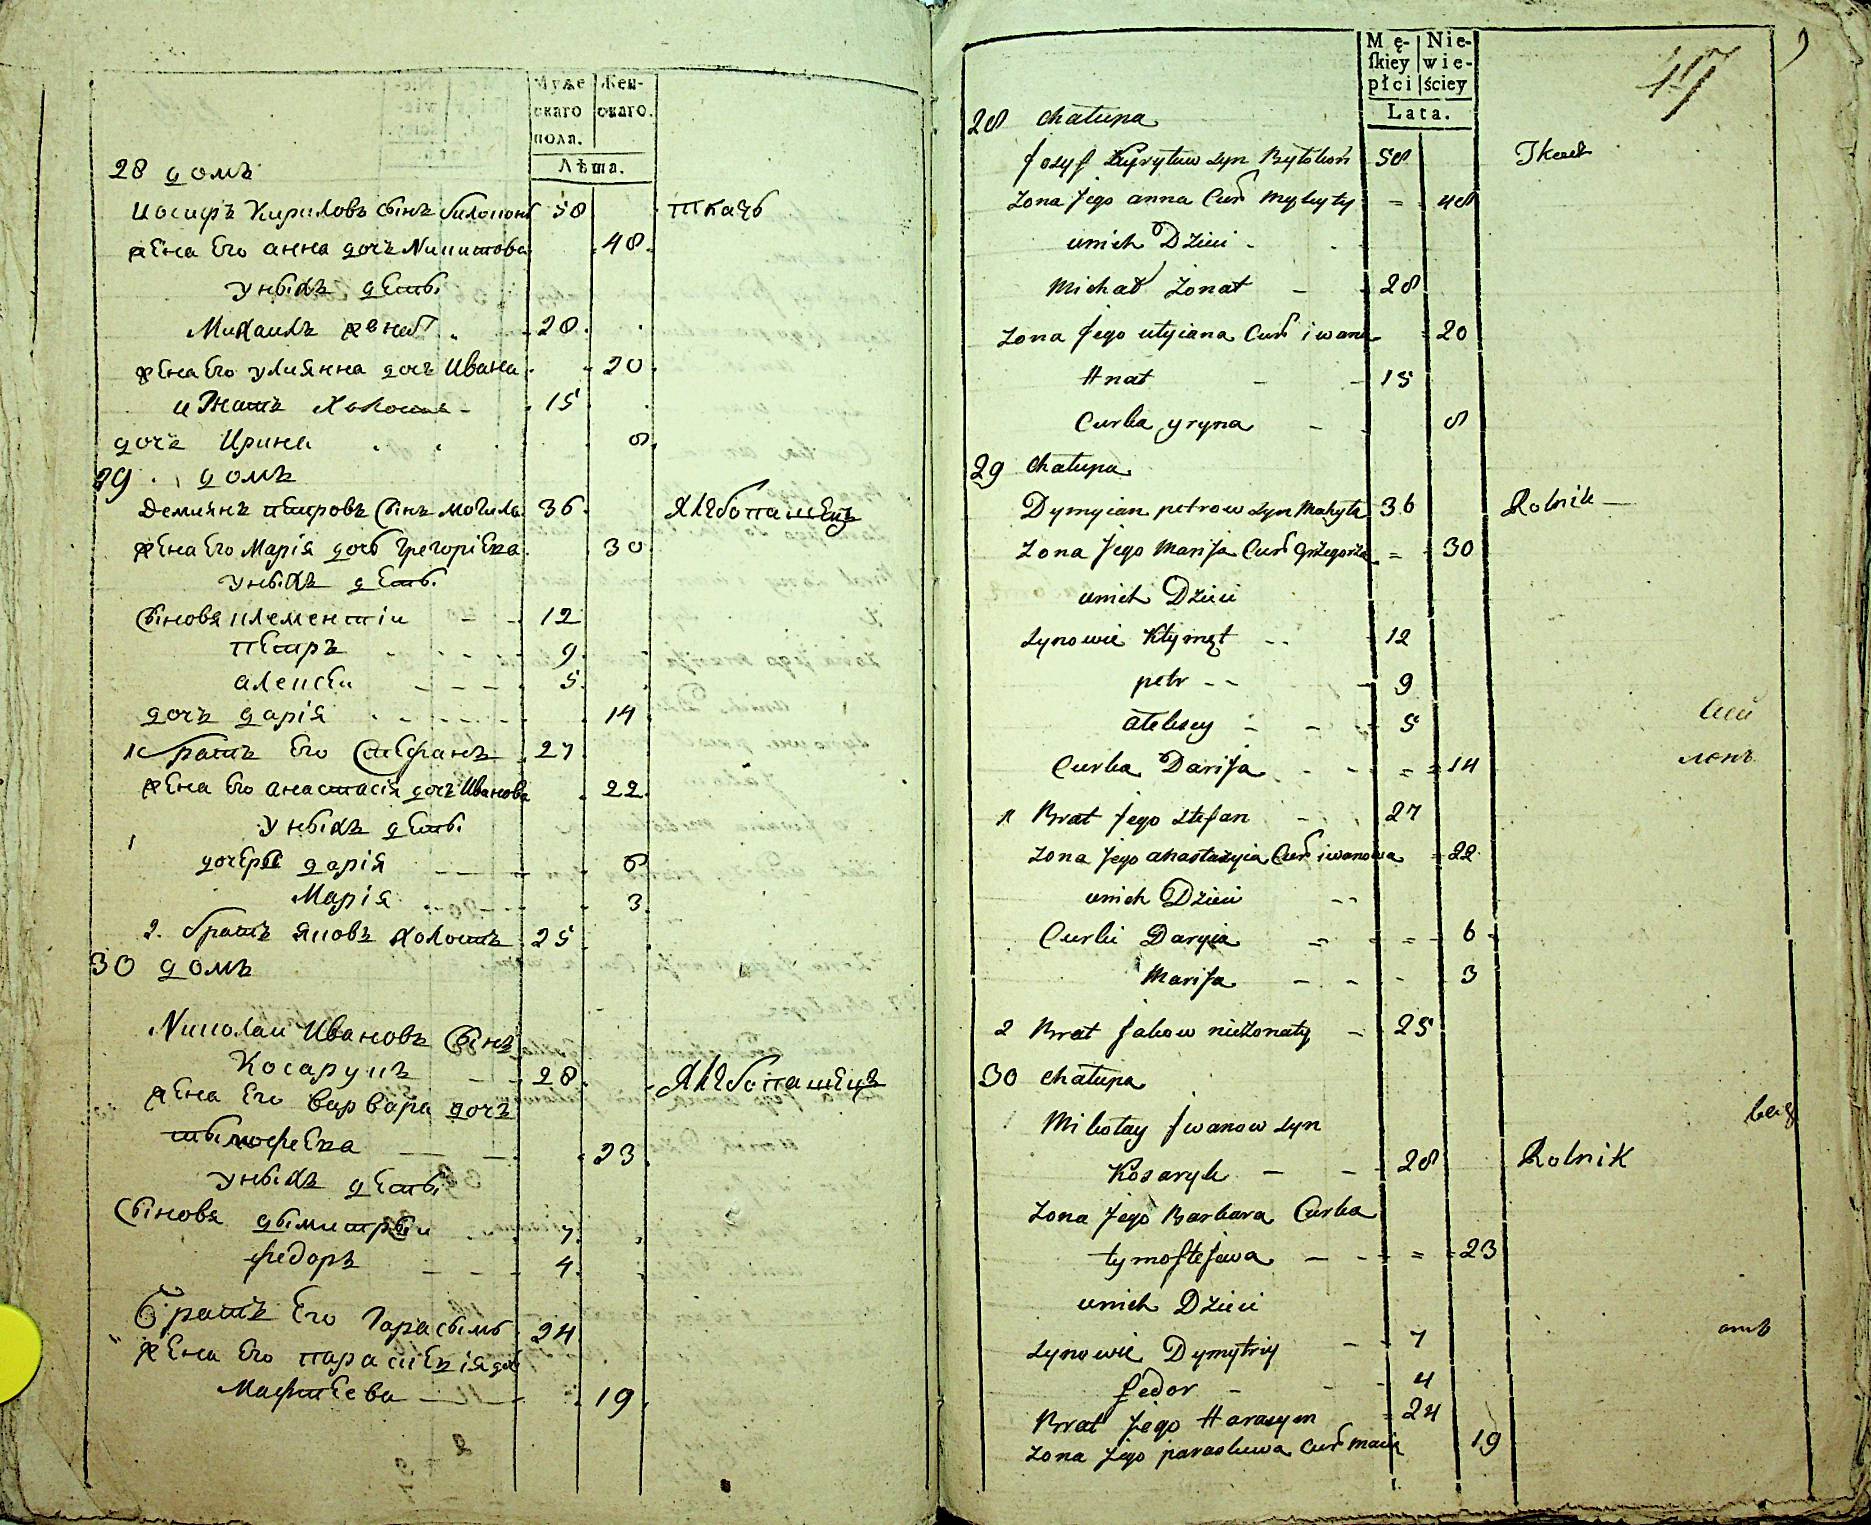 Муже
скаго
пола.
Жен-
скаго.
Лѣта.
28 домъ
Иосифъ Кириловъ сынъ 58 ткачь
жена Его анна дочь Никитова 48
уныхъ дети
Михаилъ женат 28
жена Его улиянна дочь Ивана 20
игнатъ холостъ 15
дочь Ирина 8
29 домъ
Демиянъ петровъ сынъ могила 36 хлебопашецъ
жена Его Марія дочь Грегоріева 30
уныхъ дети
сыновя клементіи 12
петръ 9
алексеи 5
дочь дарія 14
1 братъ Его стефанъ 27
жена Его анастасія дочь Иванова 22
уныхъ дети
дочери дарія 6
Марія 3
2. братъ яковъ холостъ 25
30 домъ
Николаи Ивановъ сынъ
Косарукъ 28 хлебопашецъ
жена Его варвара дочь
тымофеева 23
уныхъ дети
сыновя дымитрыи 7
федоръ 4
братъ Его Гарасымъ 24
жена Его параскевія доч
Мафтеева 19
Mę-
ſkiey
płci
Nie-
wie-
ściey
Lata.
47
28 chałupa
Jozyf Kyryłuw syn 58 Tkacz
Zona Jego anna Cur Mykyty = 48
unich Dzieci
Michał Zonat 28
Zona Jego ulyiana Cur iwana 20
Hnat 15
Curka yryna 8
29 Chałupa
Dymyian petrow syn Mohyla 36 Rolnik
Zona Jego Marija Cur Grzegorza = 30
unich Dzieci
synowie Kłymęt 12
petr 9
ałeksey 5
Curka Darija = 14
1 Brat Jego stefan 27
Zona Jego anastazyia Cur iwanowa 22
unich Dzieci
Curki Daryia = = 6
Marija 3
2 Brat Jakow nieżonaty 25
30 chałupa
Mikołay Jwanow syn
Kosaryk 28 Rolnik
Zona Jego Barbara Curka
tymoftejewa = 23
unich Dzieci
synowie Dymytriy 7
fedor 4
Brat Jego Harasym 24
Zona Jego paraskewa Cur 19